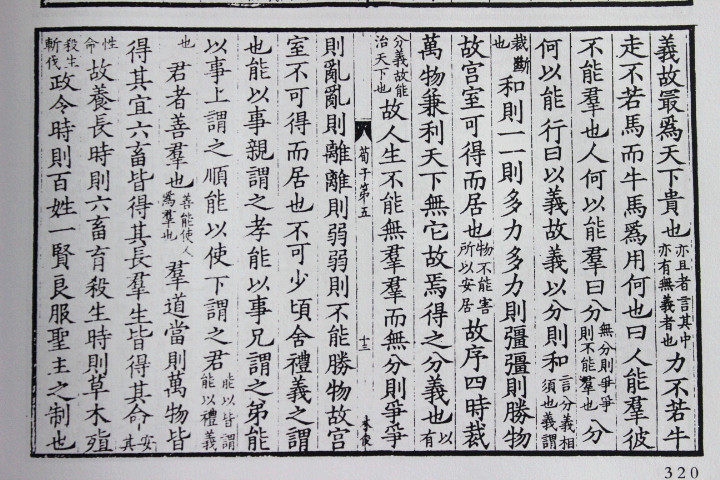 義故最爲天下貴也亦且者言其中亦有無義者也力不若牛
走不若馬而牛馬爲用何也曰人能羣彼
不能羣也人何以能羣曰分無分則爭爭則不能羣也分
何以能行曰以義故義以分則和言分義相須也義謂
裁斷也和則一一則多力多力則彊彊則勝物
故宫室可得而居也物不能害所以安居故序四時裁
萬物兼利天下無它故焉得之分義也以有
分義故能治天下也故人生不能無羣羣而無分則爭爭
荀子第五
十三
則亂亂則離離則弱弱則不能勝物故宫
室不可得而居也不可少頃舍禮義之謂
也能以事親謂之孝能以事兄謂之弟能
以事上謂之順能以使下謂之君能以皆謂能以禮義
也君者善羣也善能使人爲羣也羣道當則萬物皆
得其宜六畜皆得其長羣生皆得其命安其
性命故養長時則六畜育殺生時則草木殖
殺生斬伐政令時則百姓一賢良服聖主之制也
320